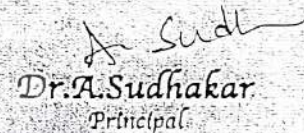 A. Sudh
Dr.A.Sudhakar
Principal